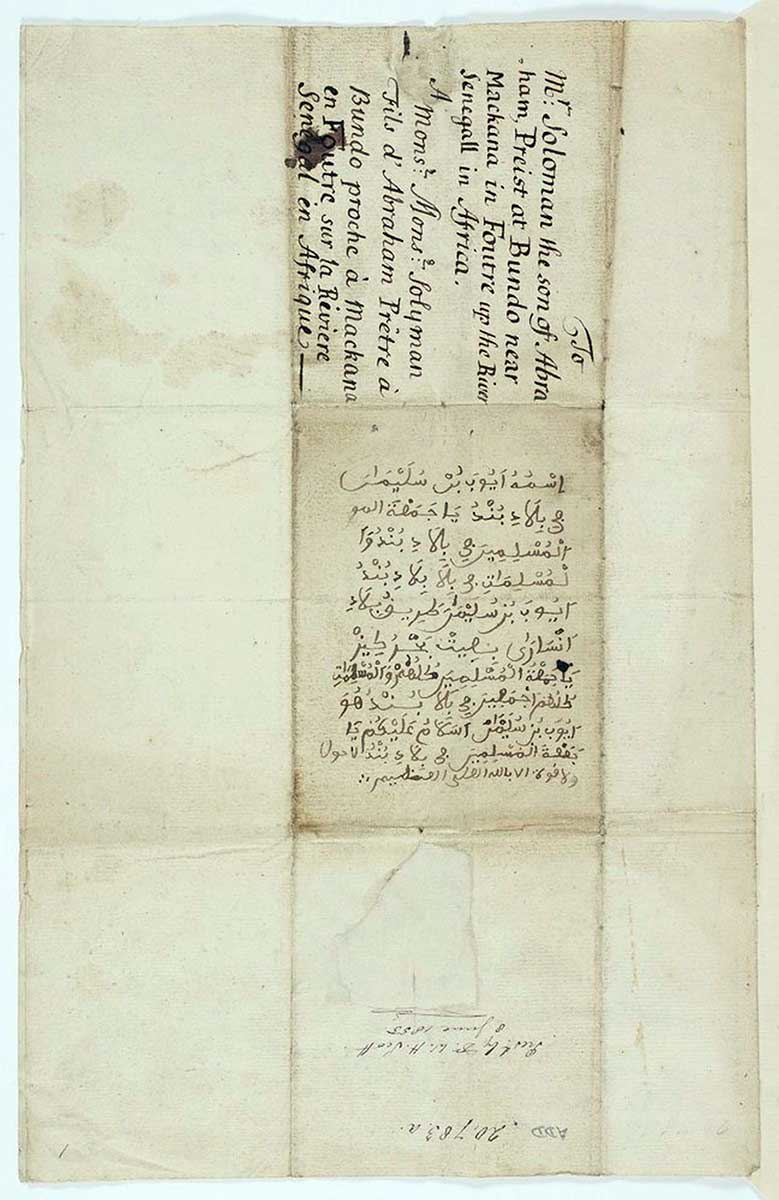 To
Mr. Soloman the son of Abra
ham, Preist at Bundo near
Mackana in Foutre up the River
Senegall in Africa.
A Monsr. Monsr. Solyman
Fils d' Abraham Prêtre à
Bundo proche à Mackana
en Foutre sur la Riviere
Senegal en Afrique
اِسْمُهُ اَيُوبَ بُنْ سُلَيْمَان
في بِلَادِ بُنْدُ يَا جَمَعَة المو
الْمُسْلِمِينَ في بِلَادِ بُنْدُ وَا
لْمُسْلِمَاتِ في بِلَادِ بُنْدُ
اَيُوبَ بُنْ سُلَيْمَان
يَا جَمَعَة الْمُسْلِمِينَ كُلُّهُمْ وَالْمُسْلِمَاتِ
كُلُّهُمْ اَجْمَعِينَ في بِلَادِ بُنْدُ هُوَ
اَيُوبَ بُنْ سُلَيْمَان اَسَلَامُ عَلَيْكُمْ يَا
جَمَعَة الْمُسْلِمِينَ في بِلَادِ بُنْدُ لاحول
ولا قوة الا بالله العلي العظيم
Presd. by Dr. W. H. Scott
8 June 1855
ADD. 20,783.a.
1